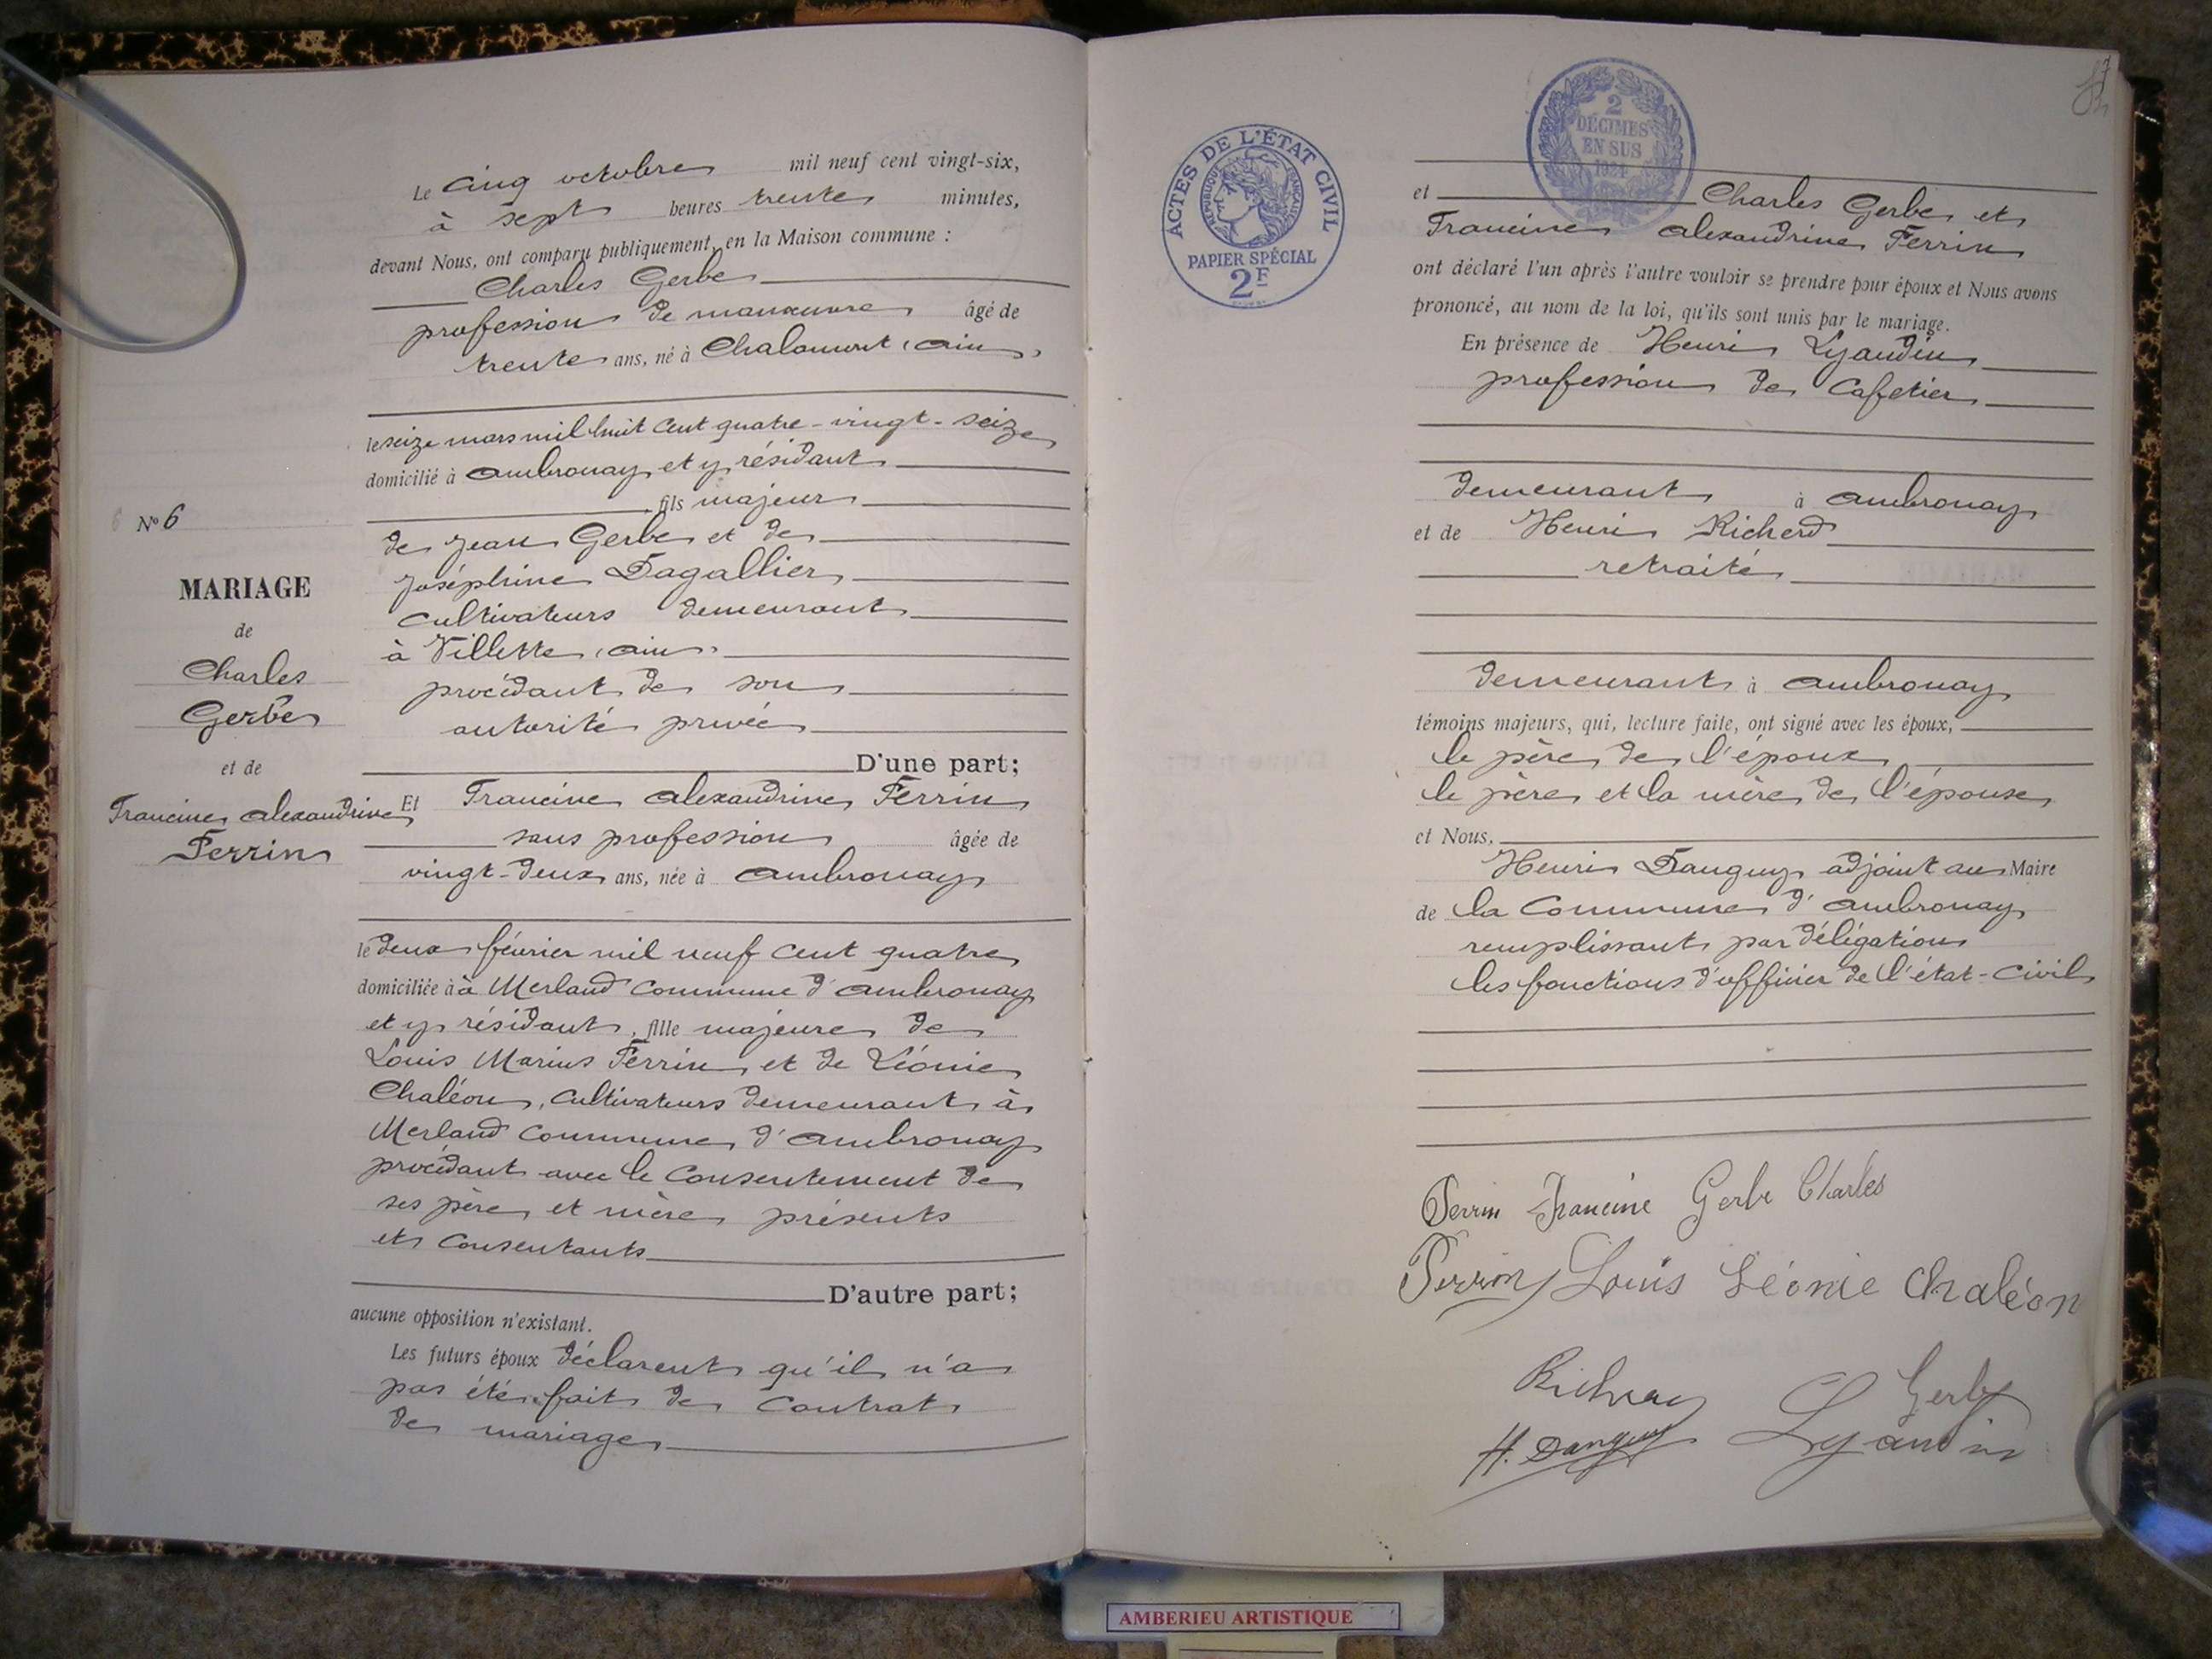 N° 6
MARIAGE
de
Charles
Gerbe
et de
Francine Alexandrine
Perrin
Le cinq octobre mil neuf cent vingt-six,
à sept heures trente minutes,
devant Nous, ont comparu publiquement, en la Maison commune :
Charles Gerbe
profession de manœuvre âgé de
trente ans, né à Chalamont (Ain)
le seize mars mil huit cent quatre-vingt-seize
domicilié à Ambronay et y résidant
fils majeur
de Jean Gerbe et de
Joséphine Dagallier
cultivateurs demeurant
à Villette (Ain)
procédant de son
autorité privée
D'une part;
Et Francine Alexandrine Perrin
sans profession âgée de
vingt-deux ans, née à Ambronay
le deux février mil neuf cent quatre
domiciliée à à Merland commune d'Ambronay
et y résidant, fille majeure de
Louis Marius Perrin et de Léonie
Chaléon, cultivateurs demeurant à
Merland commune d'Ambronay
procédant avec le consentement de
ses père et mère présents
et consentants
D'autre part;
aucune opposition n'existant.
Les futurs époux déclarent qu'il n'a
pas été fait de contrat
de mariage
ACTES DE L'ÉTAT CIVIL
RÉPUBLIQUE FRANÇAISE
PAPIER SPÉCIAL
2F
2
DÉCIMES
EN SUS
1924
et Charles Gerbe et
Francine Alexandrine Perrin
ont déclaré l'un après l'autre vouloir se prendre pour époux et Nous avons
prononcé, au nom de la loi, qu'ils sont unis par le mariage.
En présence de Henri Lyaudin
profession de cafetier
demeurant à Ambronay
et de Henri Richerd
retraité
demeurant à Ambronay
témoins majeurs, qui, lecture faite, ont signé avec les époux,
le père de l'époux
le père et la mère de l'épouse
et Nous,
Henri Danguy adjoint au Maire
de la Commune d'Ambronay
remplissant par délégation
les fonctions d'officier de l'état-civil
Perrin Francine Gerbe Charles
Perrin Louis Léonie Chaléon
Gerbe
H. Danguy Lyaudin
AMBERIEU ARTISTIQUE